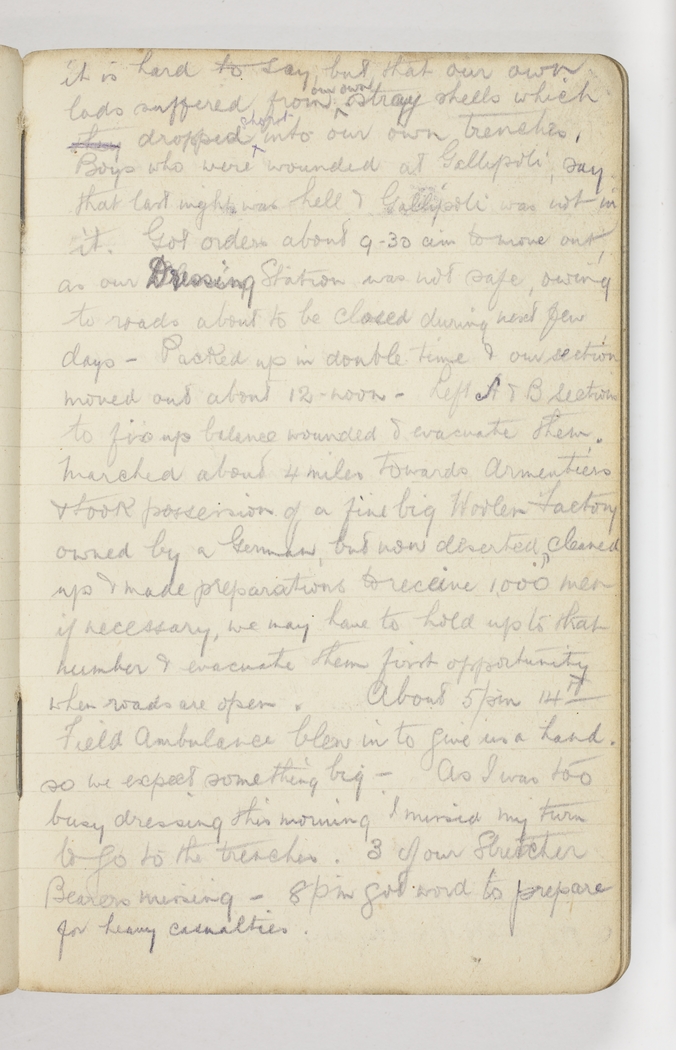 it is hard to say, but that our own
lads suffered, from our own stray shells which
they dropped short into our own trenches.
Boys who were wounded at Gallipoli, say
that last night was hell & Gallipoli was not in
it. Got orders about 9-30 am to move out,
as our Dressing Station was not safe, owing
to roads about to be closed during next few
days - Packed up in double time & our section
moved out about 12-noon - Left A & B Sections
to fix up balance wounded & evacuate them.
Marched about 4 miles towards Armentiers
& took possession of a fine big Woolen Factory
owned by a German, but now deserted, cleaned
up & made preparations to receive 1,000 men
if necessary, we may have to hold up to that
number & evacuate them first opportunity
when roads are open. About 5/pm 14th
Field Ambulance blew in to give us a hand.
so we expect something big - As I was too
busy dressing this morning I missed my turn
to go to the trenches. 3 of our Stretcher
Bearers missing - 8/pm got word to prepare
for heavy casualties.